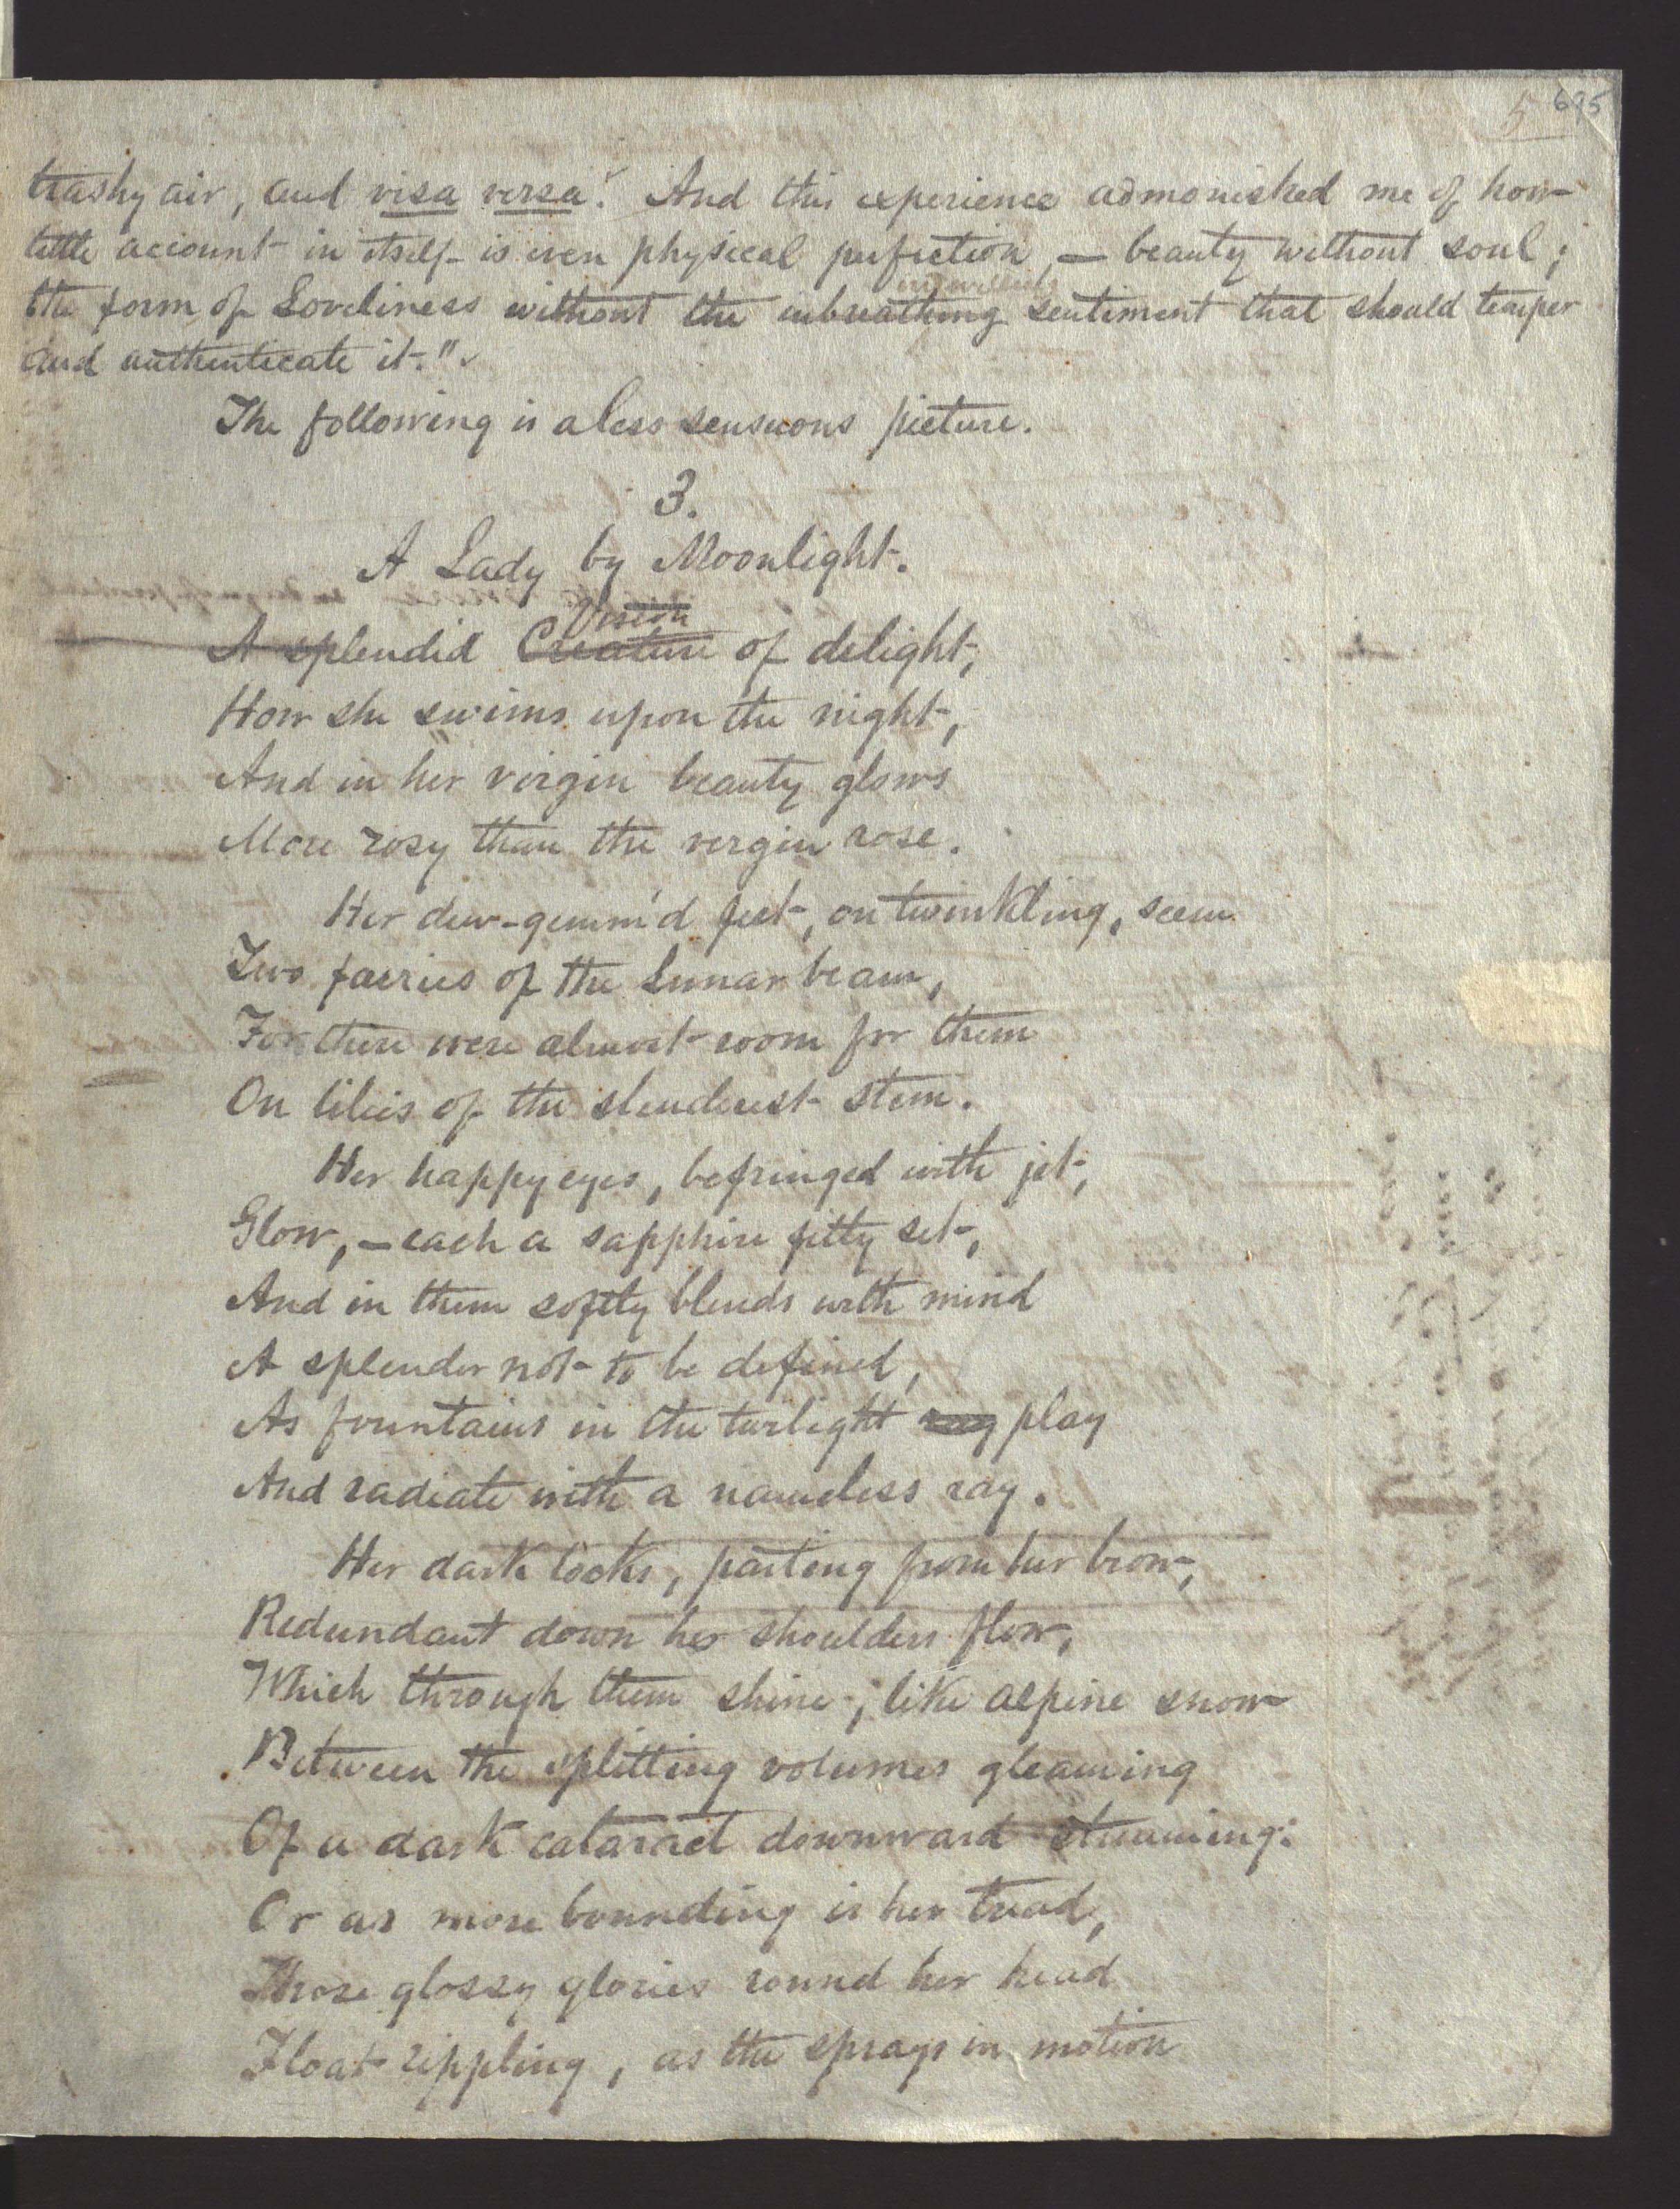 5 695
trashy air, and visa versa. And this experience admonished me of how
little account in itself is even physical perfection, — beauty without soul;
the form of Loveliness without the inbreathing sentiment that should temper
and authenticate it."
The following is a less sensuous picture.
3.
A Lady by Moonlight.
Vision
A splendid Creature of delight,
How she swims upon the night,
And in her virgin beauty glows
More rosy than the vergin rose.
Her dew-gemm'd feet, on twinkling, seem
Two faeries of the Lunar beam,
For there were almost room for them
On lilies of the slenderest stem.
Her happy eyes, befringed with jet,
Glow, — each a sapphire fitly set,
And in them softly blends with mind
A splendor not to be defined,
As fountains in the twilight ray play
And radiate with a nameless ray.
Her dark locks, parting from her brow,
Redundant down her shoulders flow,
Which through them shine, like alpine snow
Between the splitting volumes gleaming
Of a dark cataract downward streaming:
Or as more bounding is her tread,
Those glossy glories round her head
Float rippling, as the sprays in motion